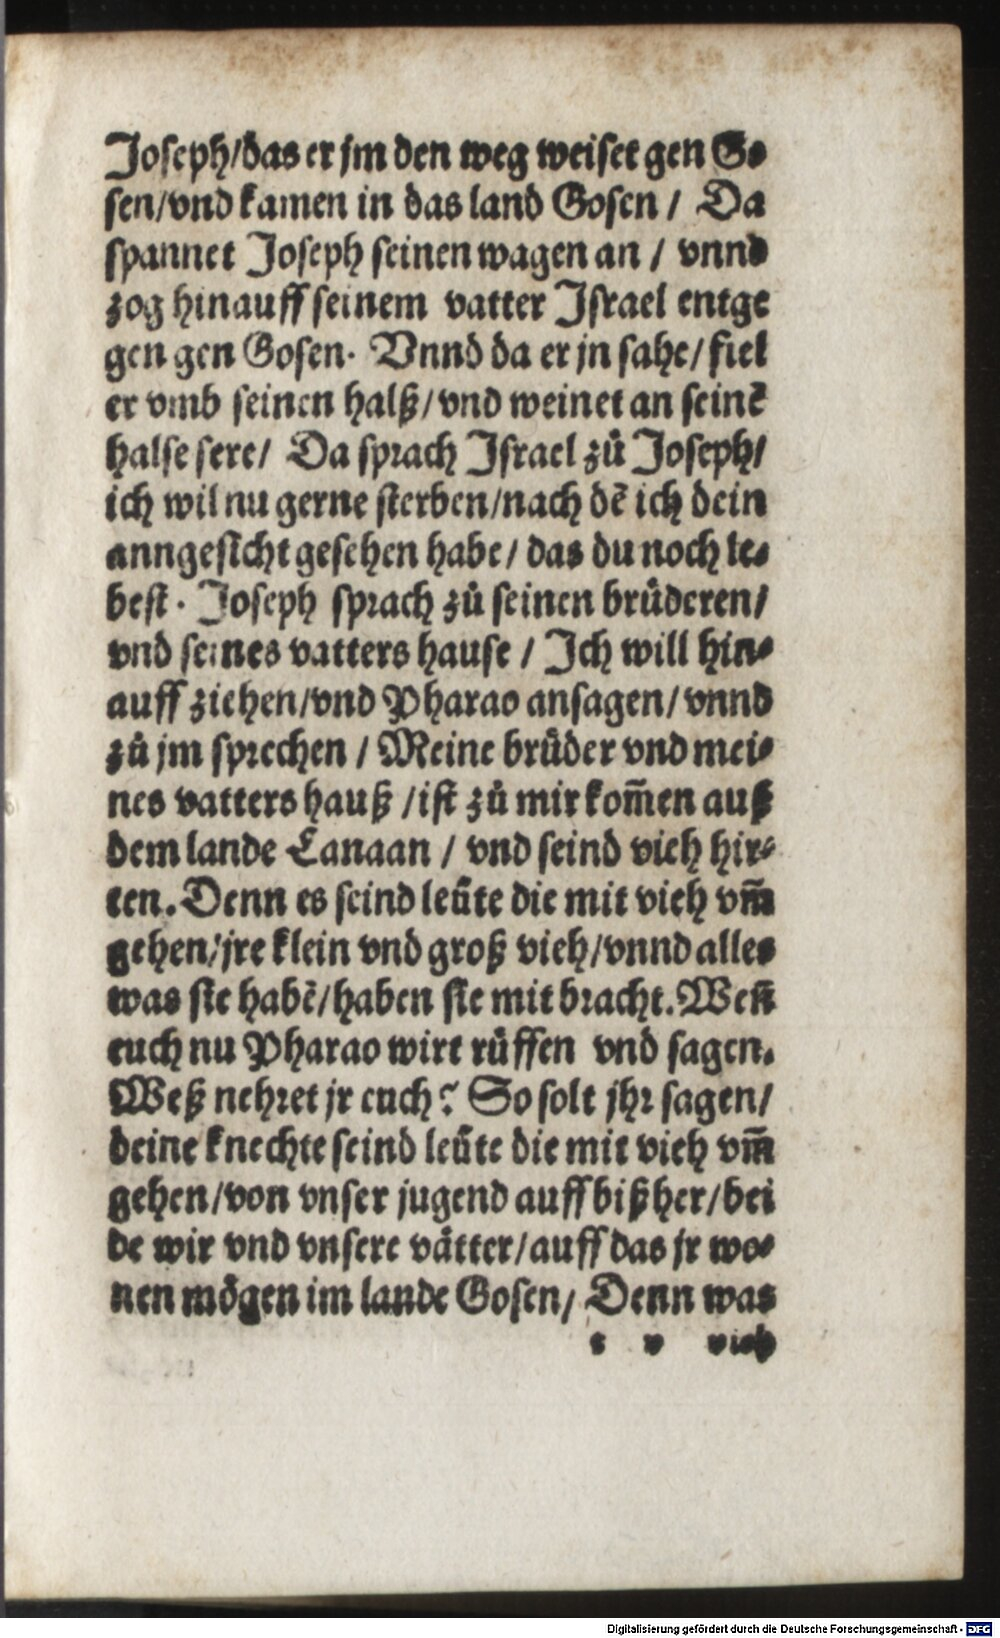 Joseph/das er jm den weg weiset gen Go⸗
sen/vnd kamen in das land Gosen / Da
spannet Joseph seinen wagen an / vnnd
zog hinauff seinem vatter Israel entge
gen gen Gosen. Vnnd da er jn sahe/ fiel
er vmb seinen halß/vnd weinet an seinē
halse sere/ Da sprach Israel zů Joseph/
ich wil nu gerne sterben/nach dē ich dein
anngesicht gesehen habe/ das du noch le⸗
best. Joseph sprach zů seinen brůderen/
vnd seines vatters hause / Ich will hin⸗
auff ziehen/vnd Pharao ansagen/ vnnd
zů jm sprechen / Meine brůder vnd mei⸗
nes vatters hauß /ist zů mir kom̄en auß
dem lande Canaan / vnd seind vieh hir⸗
ten. Denn es seind leůte die mit vieh vm̄
gehen/jre klein vnd groß vieh/vnnd alles
was sie habē/haben sie mit bracht. Weñ
euch nu Pharao wirt rüffen vnd sagen.
Weß nehret jr euch? So solt jhr sagen/
deine knechte seind leůte die mit vieh vm̄
gehen/von vnser jugend auff biß her/bei
de wir vnd vnsere vätter/auff das jr wo⸗
nen mögen im lande Gosen/ Denn was
t v vieh
Digitalisierung gefördert durch die Deutsche Forschungsgemeinschaft - DFG